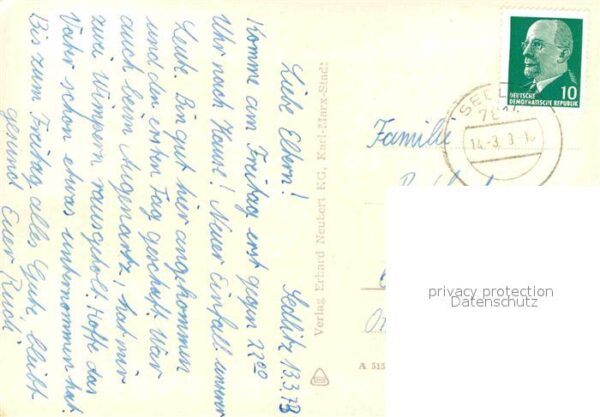 Sedlitz 13.3.73
Liebe Eltern!
Komme am Freitag erst gegen 22⁰⁰
Uhr nach Hause! Neuer Einfall unserer
Leute. Bin gut hier angekommen
und den ersten Tag geschafft. War
auch beim Augenarzt, hat mir
zwei Wimpern rausgeholt. Hoffe das
Vater schon etwas unternommen hat.
Bis zum Freitag alles Gute, bleibt
gesund Euer
Verlag Erhard Neubert KG, Karl-Marx-Stadt
A 515
DEUTSCHE
DEMOKRATISCHE REPUBLIK
10
SEDL
14.-3.
Familie
privacy protection
Datenschutz